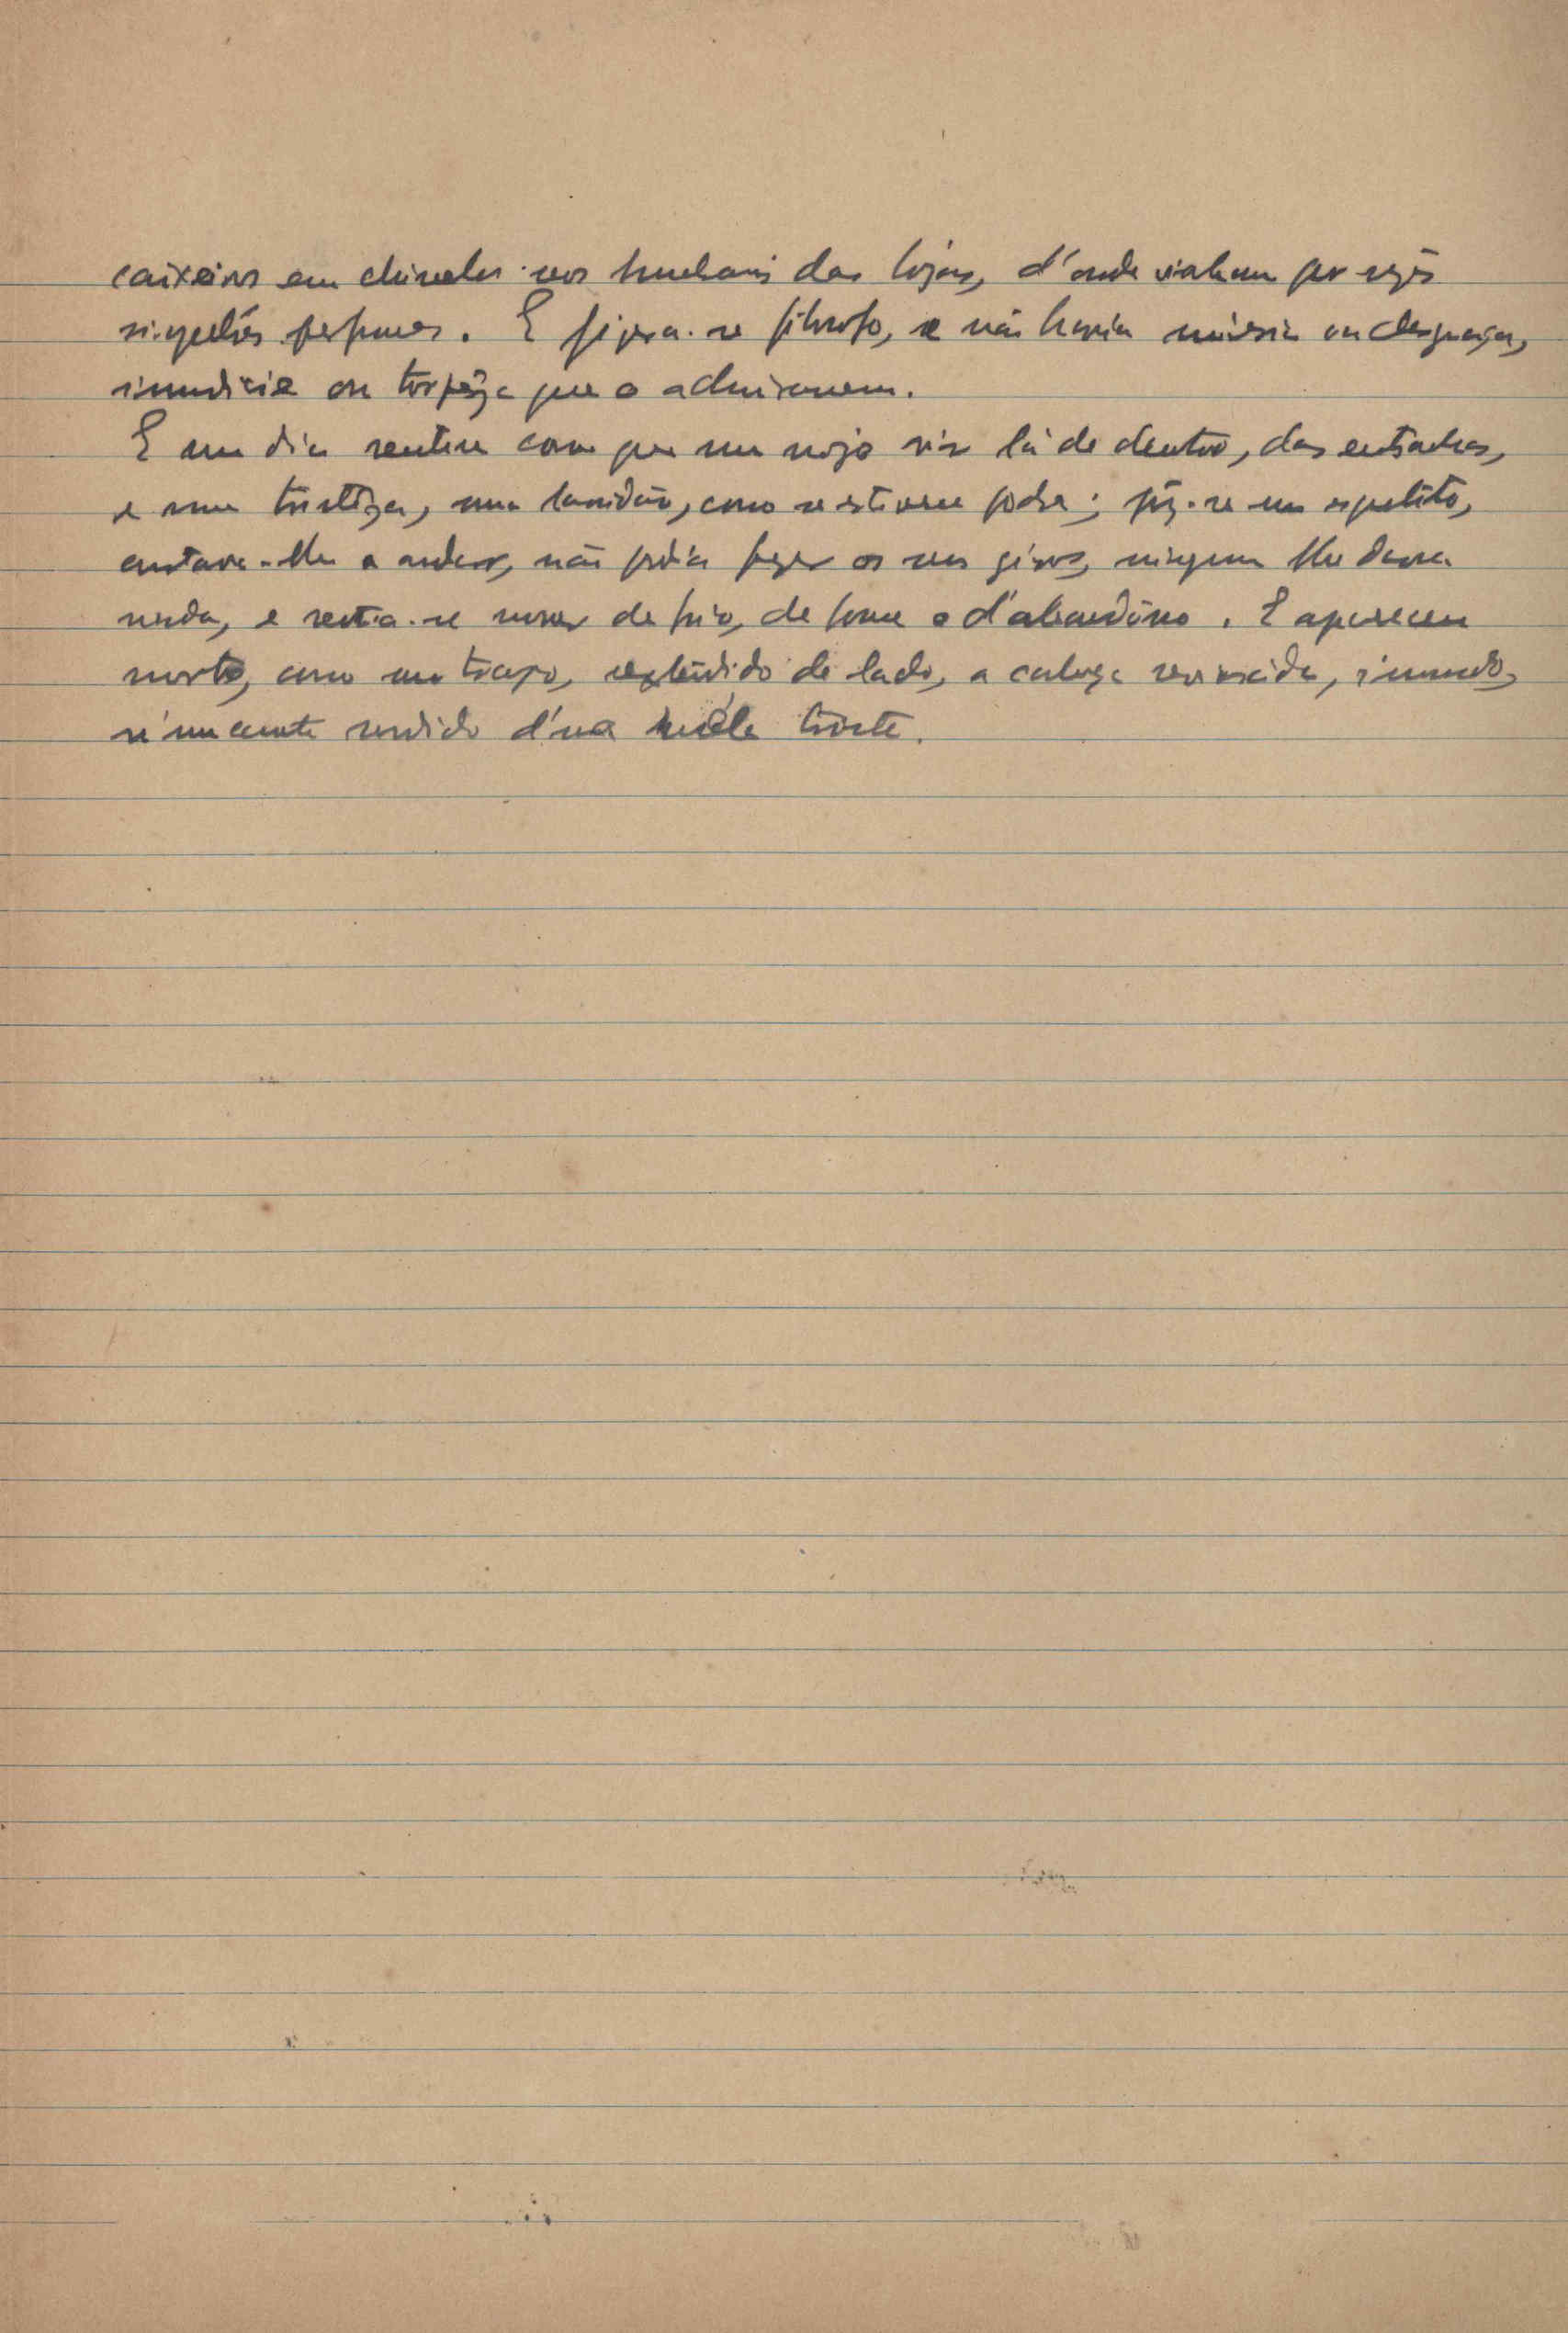 caixeiros em chinelas nos humbrais das lojas, d'onde vinham por vezes
singelos perfumes. E fizera-se filosofo, e não havia miseria ou desgraça,
immundicie ou torpêza que o admirassem.
E um dia sentiu como que um nojo vir lá de dentro, das entranhas,
e uma tristêza, uma lassidão, como se estivesse podre; fêz-se um esqueleto,
custava-lhe a andar, não podia fazer os seus giros, ninguem lhe dava
nada, e sentia-se morrer de frio, de fome e d'abandôno. E apareceu
morto, como um trapo, estendido de lado, a cabeça, immundo,
n'um canto d'uma viéla triste.